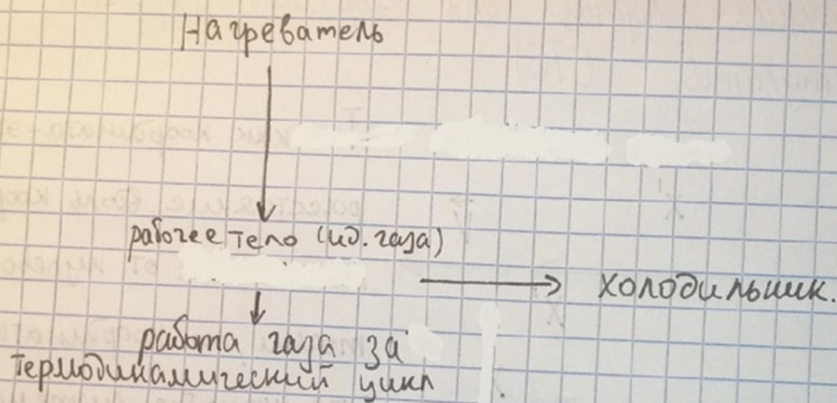 Нагреватель
рабочее тело (ид. газа)
холодильник.
работа газа за
термодинамический цикл